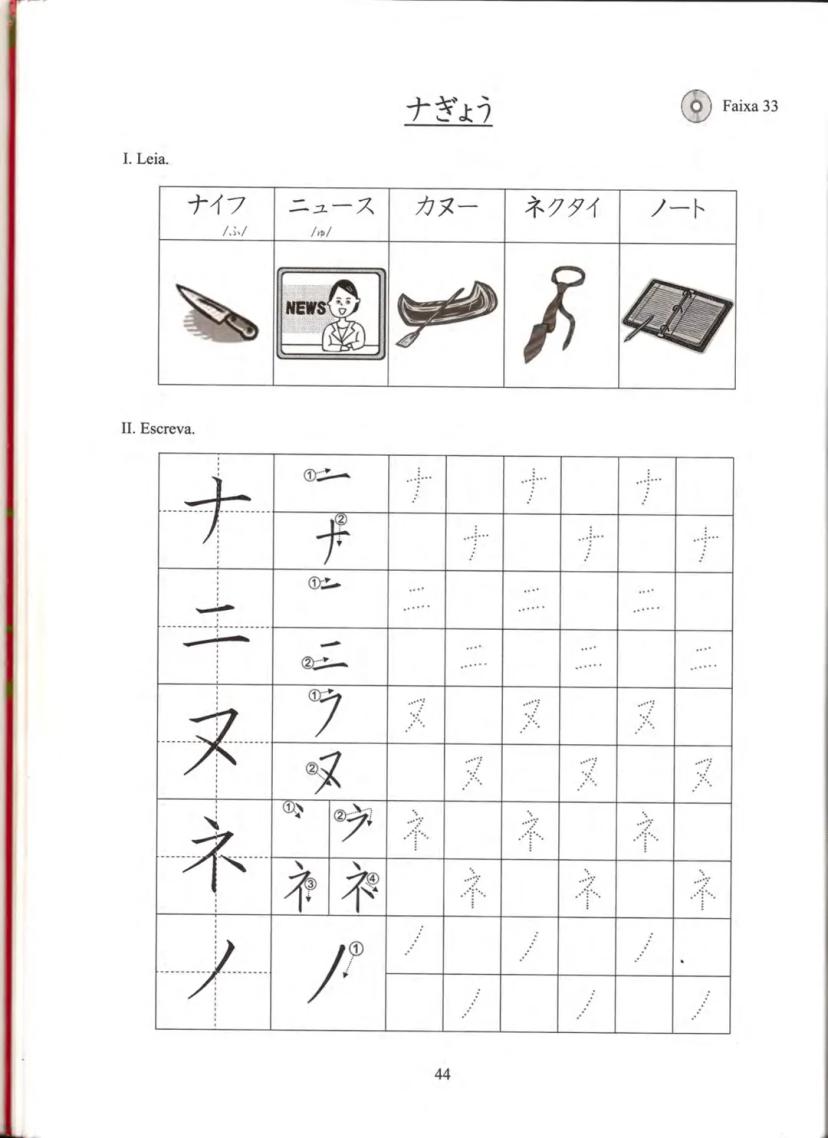 ナぎょう
Faixa 33
I. Leia.
ナイフ ニュース カヌー ネクタイ ノート
/ふ/ /ゅ/
NEWS
II. Escreva.
ナ ① ナ ナ ナ
② ナ ナ ナ ナ
ニ ① ニ ニ ニ
② ニ ニ ニ ニ
ヌ ① フ ヌ ヌ ヌ
② ヌ ヌ ヌ ヌ
ネ ① ② ネ ネ ネ
③ ④ ネ ネ ネ ネ
ノ ノ ① ノ ノ ノ
ノ ノ ノ
44